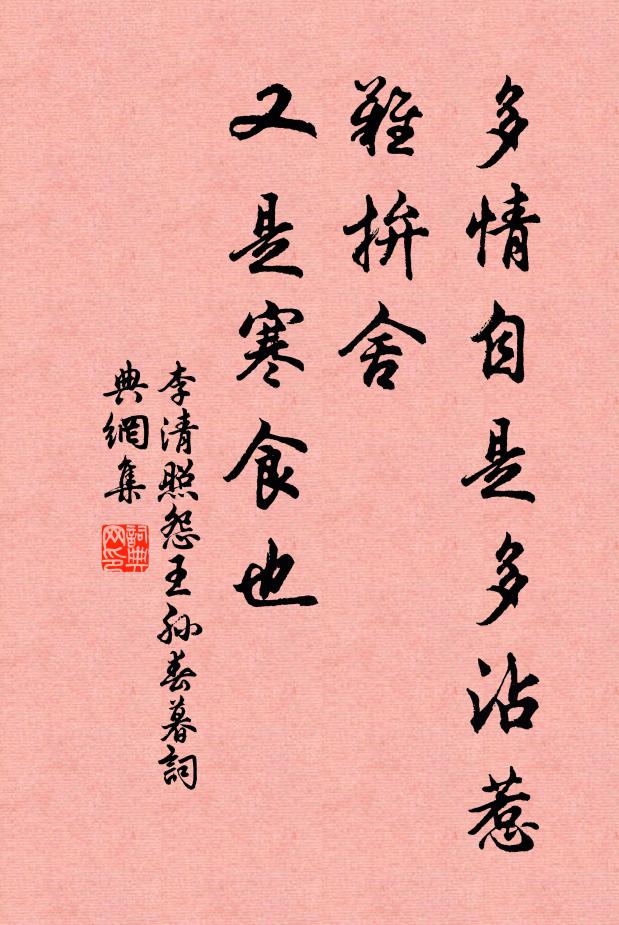 多情自是多沾惹
難拚舍
又是寒食也
李清照怨王孫春暮詞
典網集
詞典
网印